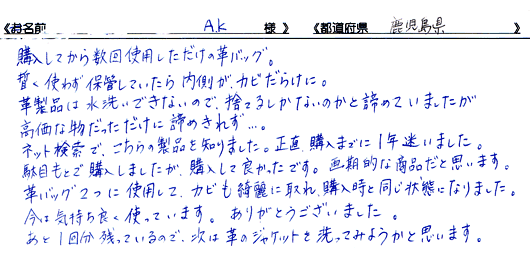 《お名前 A.K 様》《都道府県 鹿児島県 》
購入してから数回使用しただけの革バッグ。
暫く使わず保管していたら内側が、カビだらけに。
革製品は水洗いできないので、捨てるしかないのかと諦めていましたが
高価な物だっただけに諦めきれず…。
ネット検索で、こちらの製品を知りました。正直購入までに1年迷いました。
駄目もとで購入しましたが、購入して良かったです。画期的な商品だと思います。
革バッグ2つに使用して、カビも綺麗に取れ、購入時と同じ状態になりました。
今は気持ち良く使っています。ありがとうございました。
あと1回分残っているので、次は革のジャケットを洗ってみようかと思います。